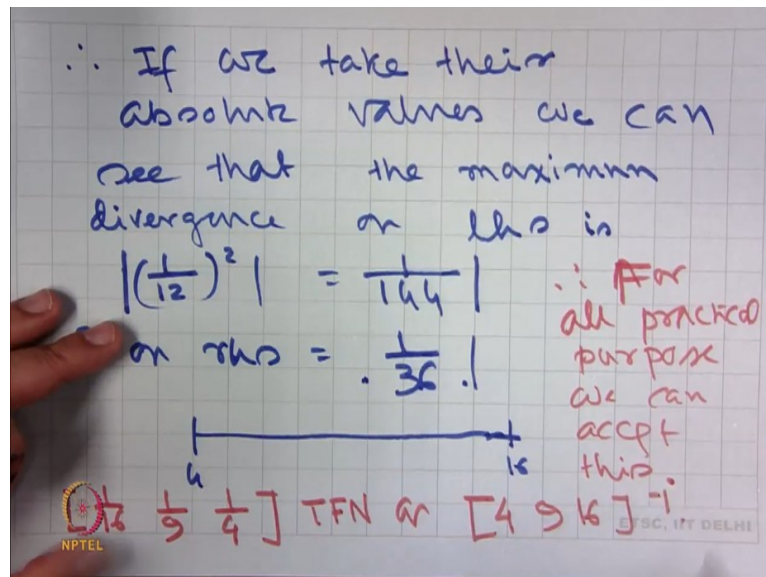 ∴ If we take their
absolute values we can
see that the maximum
divergence on lhs is
|(1/12)²| = 1/144 |
on rhs = . 1/36 . |
∴ For
all practical
purpose
we can
accept
this.
4 16
[1/16 1/9 1/4] TFN as [4 9 16]⁻¹
NPTEL
ETSC, IIT DELHI